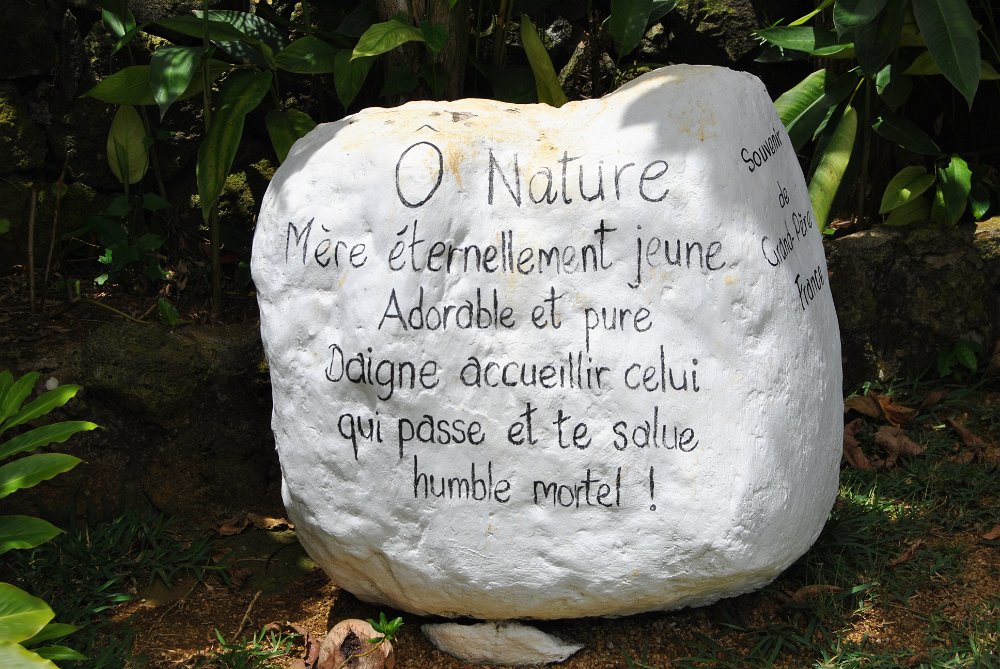 Ô Nature
Mère éternellement jeune
Adorable et purè
Daigne accueillir celui
qui passe et te salue
humble mortel !
Souvenir
de
Grand-Père
France